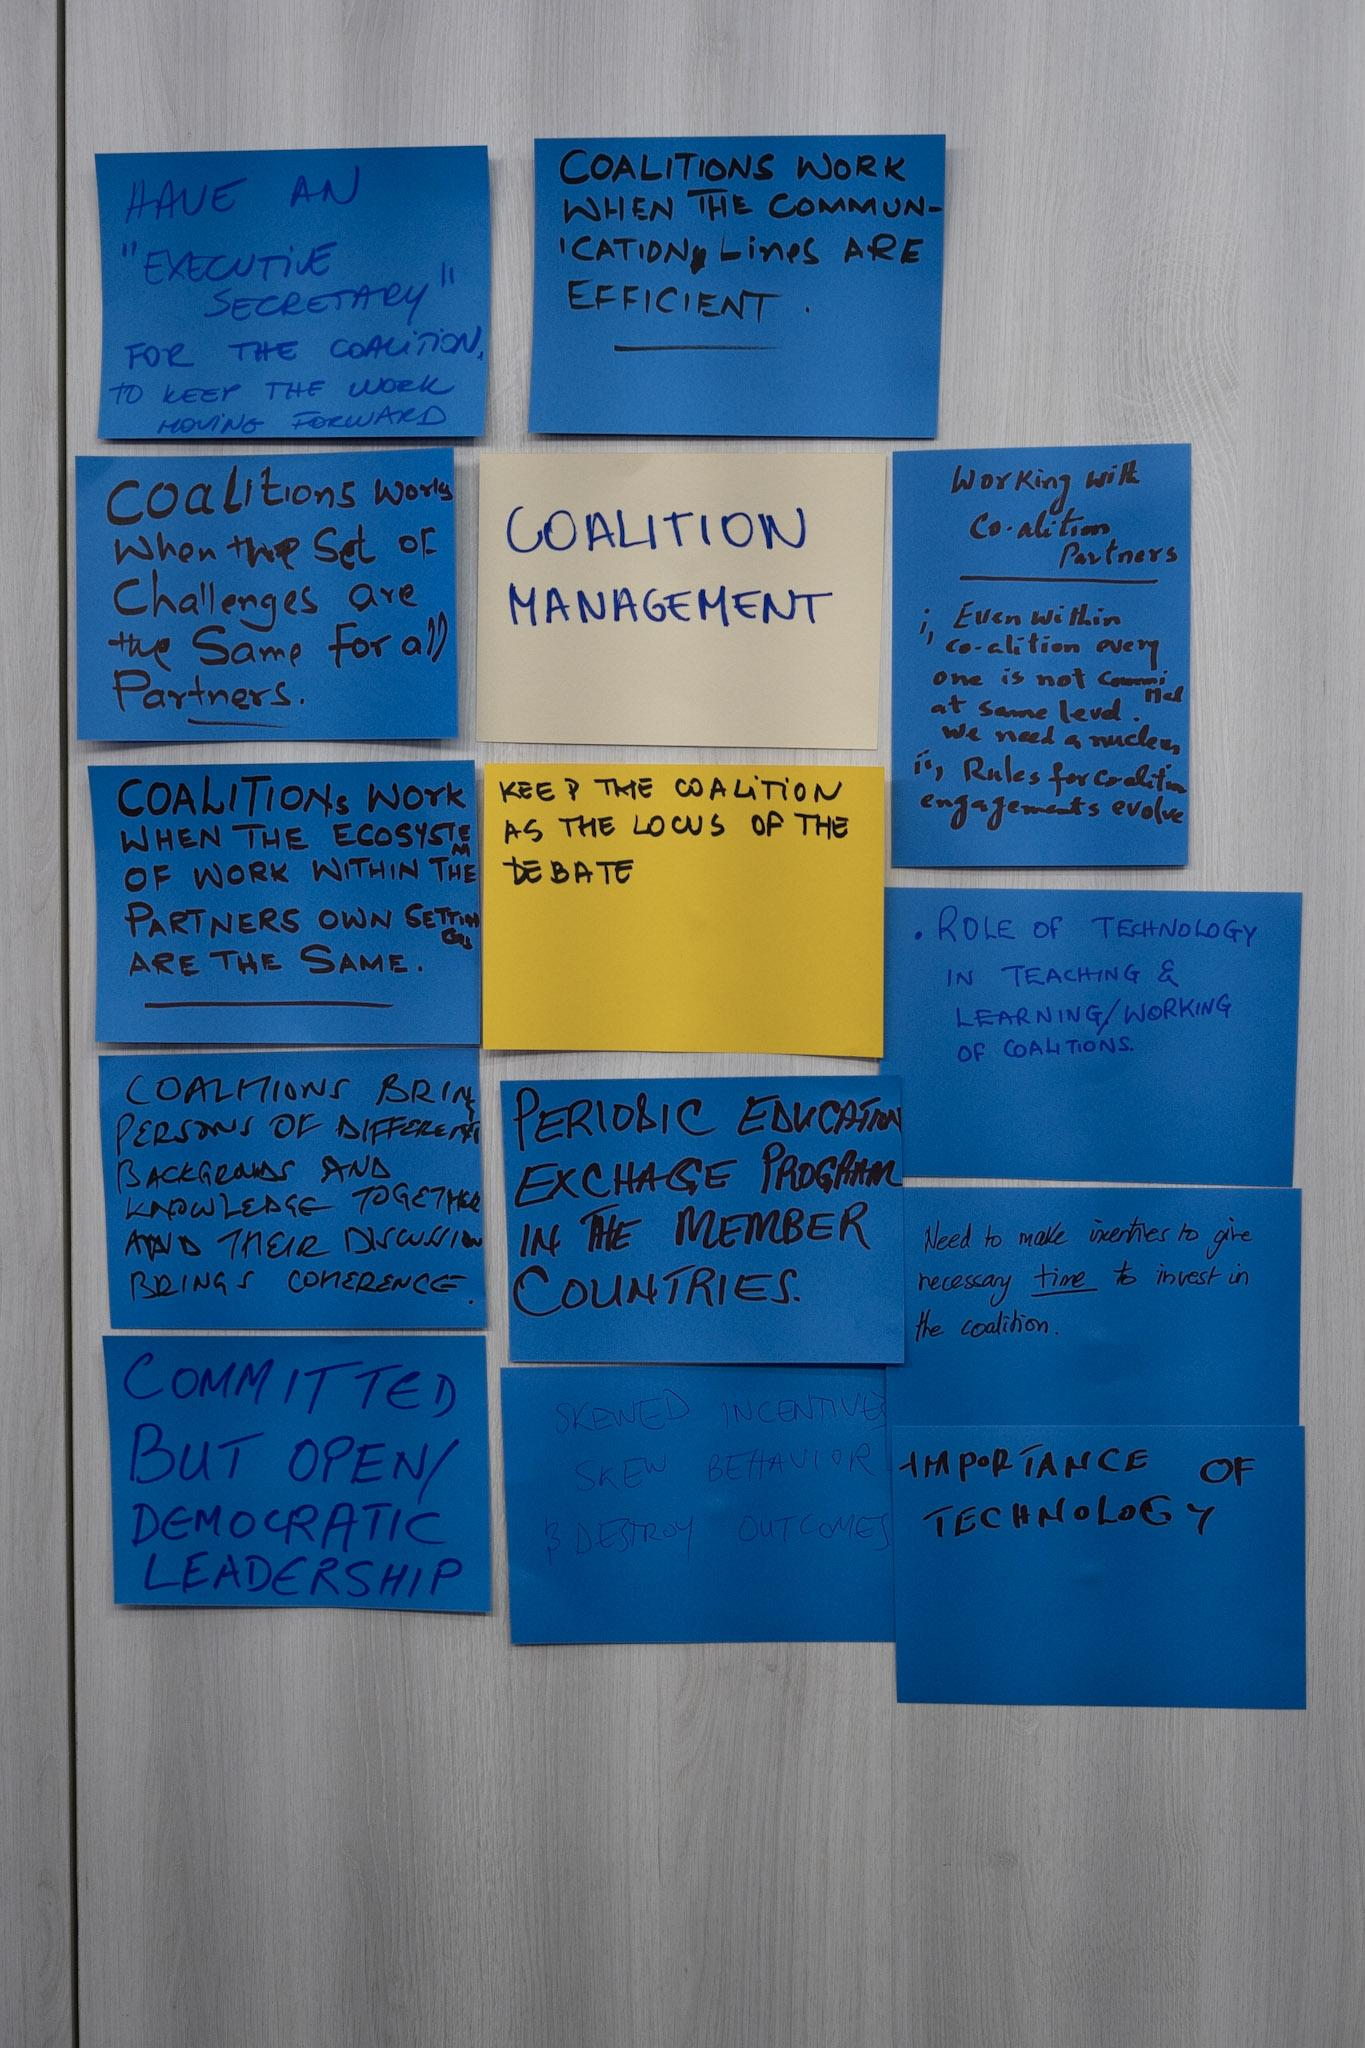 HAVE AN
"EXECUTIVE
SECRETARY"
FOR THE COALITION,
TO KEEP THE WORK
MOVING FORWARD
COALITIONS WORK
WHEN THE COMMUN-
ICATION Lines ARE
EFFICIENT.
Coalitions works
When the Set of
Challenges are
the Same for all
Partners.
COALITION
MANAGEMENT
Working with
Co-alition
Partners
i, Even within
co-alition every
one is not committed
at same level.
we need a nucleus
ii, Rules for coalition
engagements evolve
COALITIONs WORK
WHEN THE ECOSYSTEM
OF WORK WITHIN THE
PARTNERS OWN SETTINGS
ARE THE SAME.
KEEP THE COALITION
AS THE LOCUS OF THE
DEBATE
. ROLE OF TECHNOLOGY
IN TEACHING &
LEARNING/WORKING
OF COALITIONS.
COALITIONS BRING
PERSONS OF DIFFERENT
BACKGROUNDS AND
KNOWLEDGE TOGETHER
AND THEIR DISCUSSION
BRINGS COHERENCE.
PERIODIC EDUCATION
EXCHAGE PROGRAM
IN THE MEMBER
COUNTRIES.
Need to make incentives to give
necessary time to invest in
the coalition.
COMMITTED
BUT OPEN/
DEMOCRATIC
LEADERSHIP
SKEWED INCENTIVES
SKEW BEHAVIOR
& DESTROY OUTCOMES
IMPORTANCE OF
TECHNOLOGY